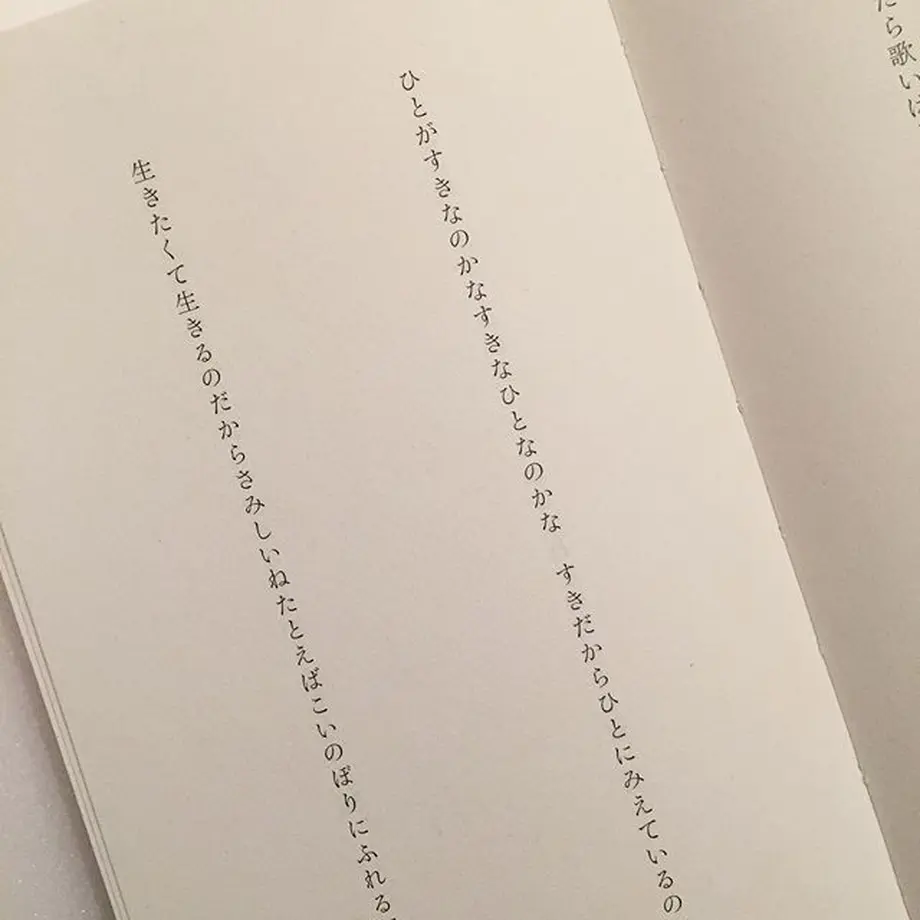 たら歌いは
ひとがすきなのかなすきなひとなのかな　すきだからひとにみえているの
生きたくて生きるのだからさみしいねたとえばこいのぼりにふれる